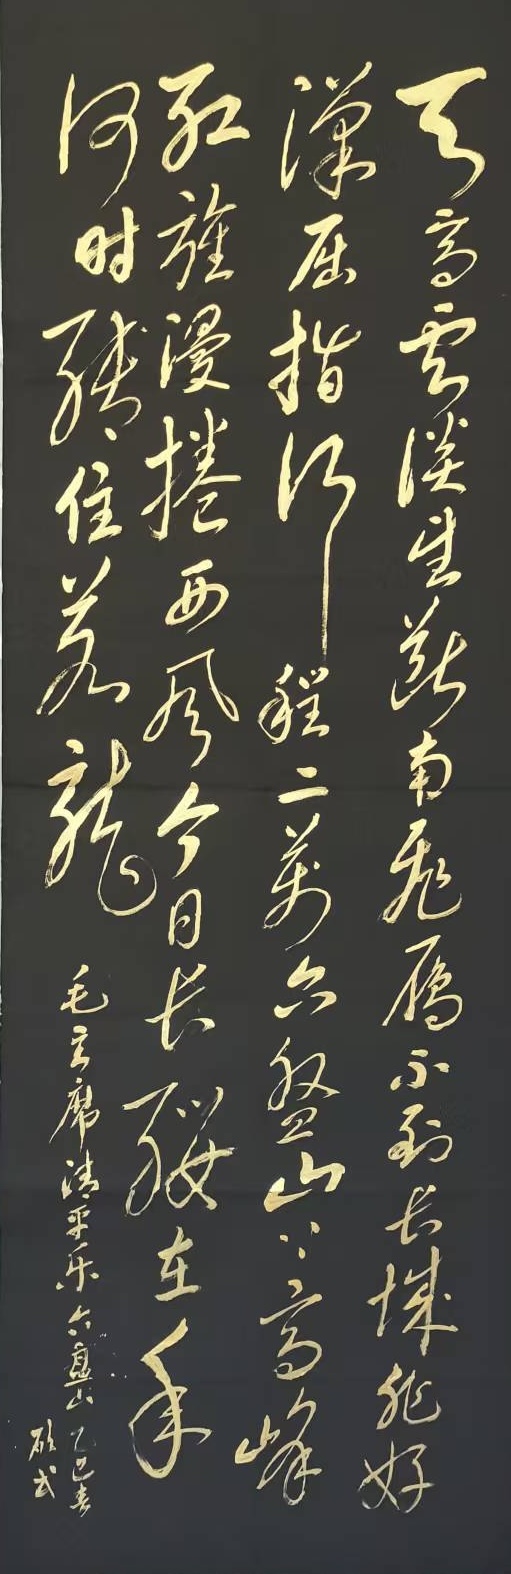 天高云淡望断南飞雁不到长城非好
汉屈指行程二万六盘山上高峰
红旗漫捲西风今日长缨在手
何时缚住苍龙
毛主席清平乐六盘山
乙巳春